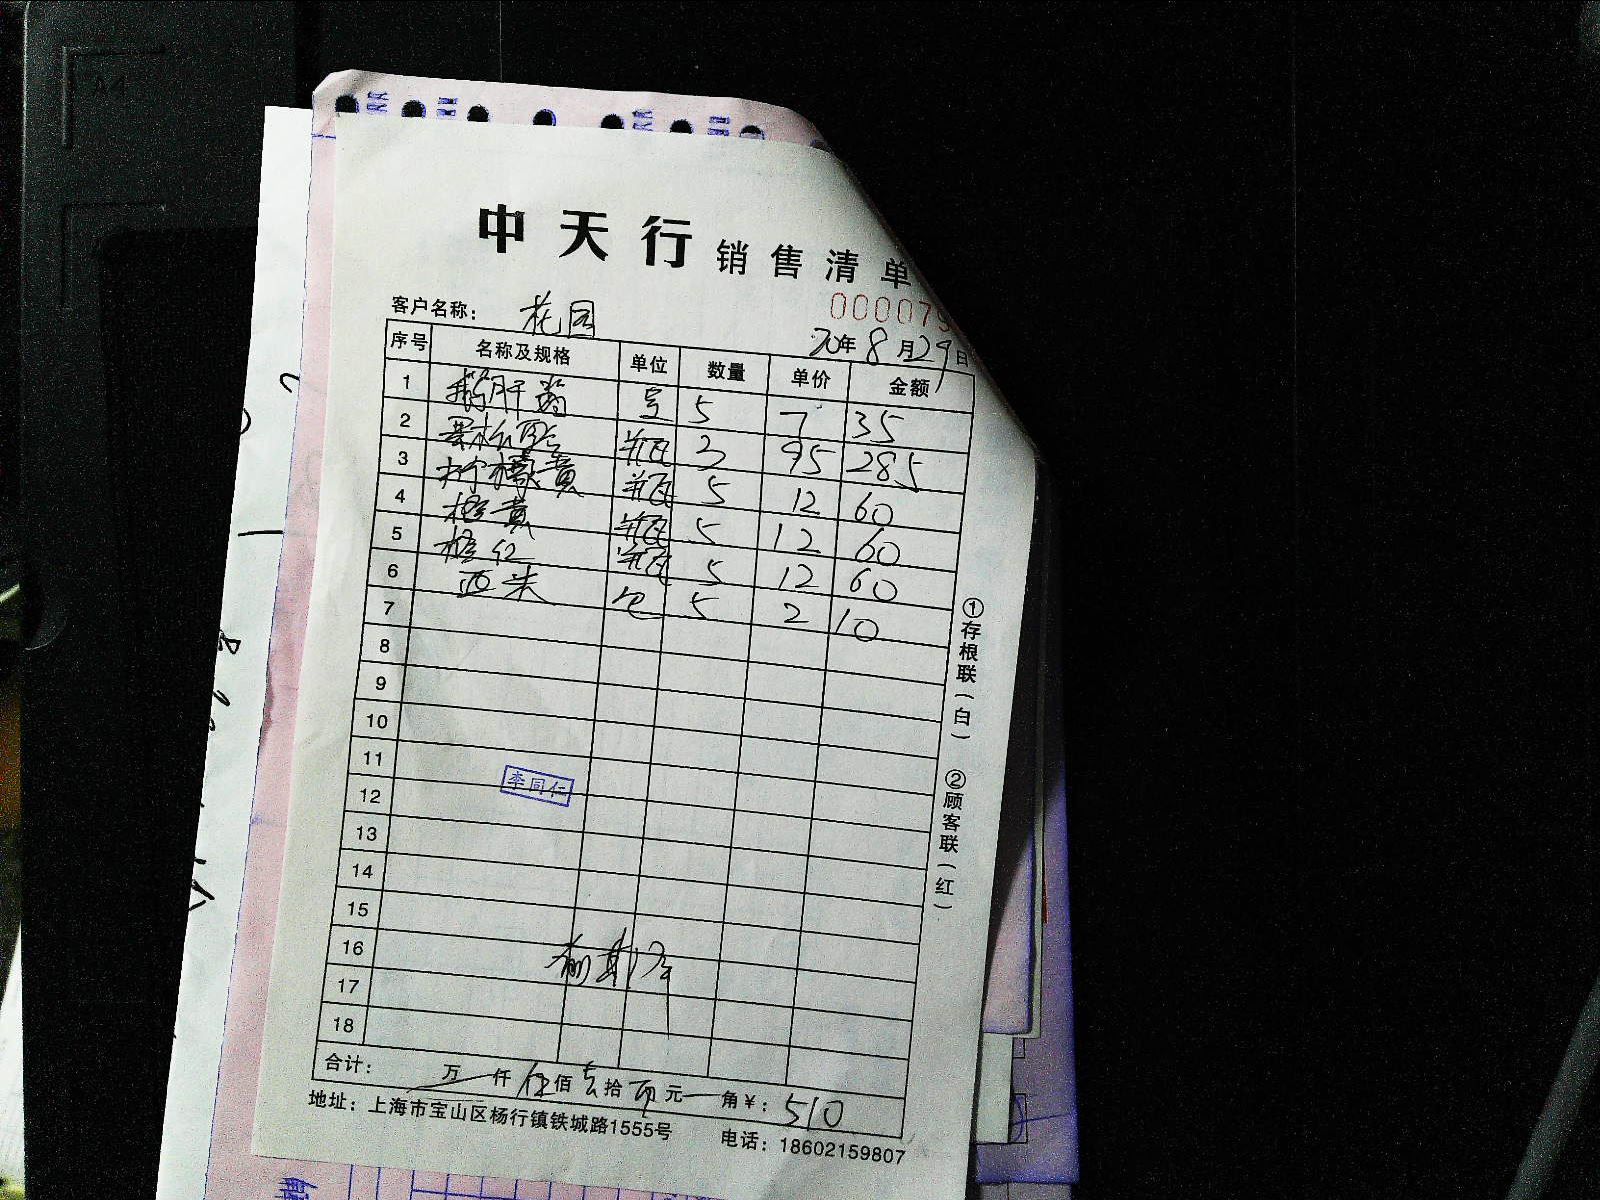 中天行销售清单
000079
客户名称： 花园 20年8月29日
序号 名称及规格 单位 数量 单价 金额
1 鹅肝 5 7 35
2 瓶 3 95 285
3 柠檬黄 瓶 5 12 60
4 橙黄 瓶 5 12 60
5 橙红 瓶 5 12 60
6 西米 包 5 2 10
7
8
9
10
11
12
李同仁
13
14
15
16
17
18
合计： 万 仟 伍佰 壹拾 元 角￥：510
地址：上海市宝山区杨行镇铁城路1555号 电话：18602159807
①存根联（白）
②顾客联（红）
A4